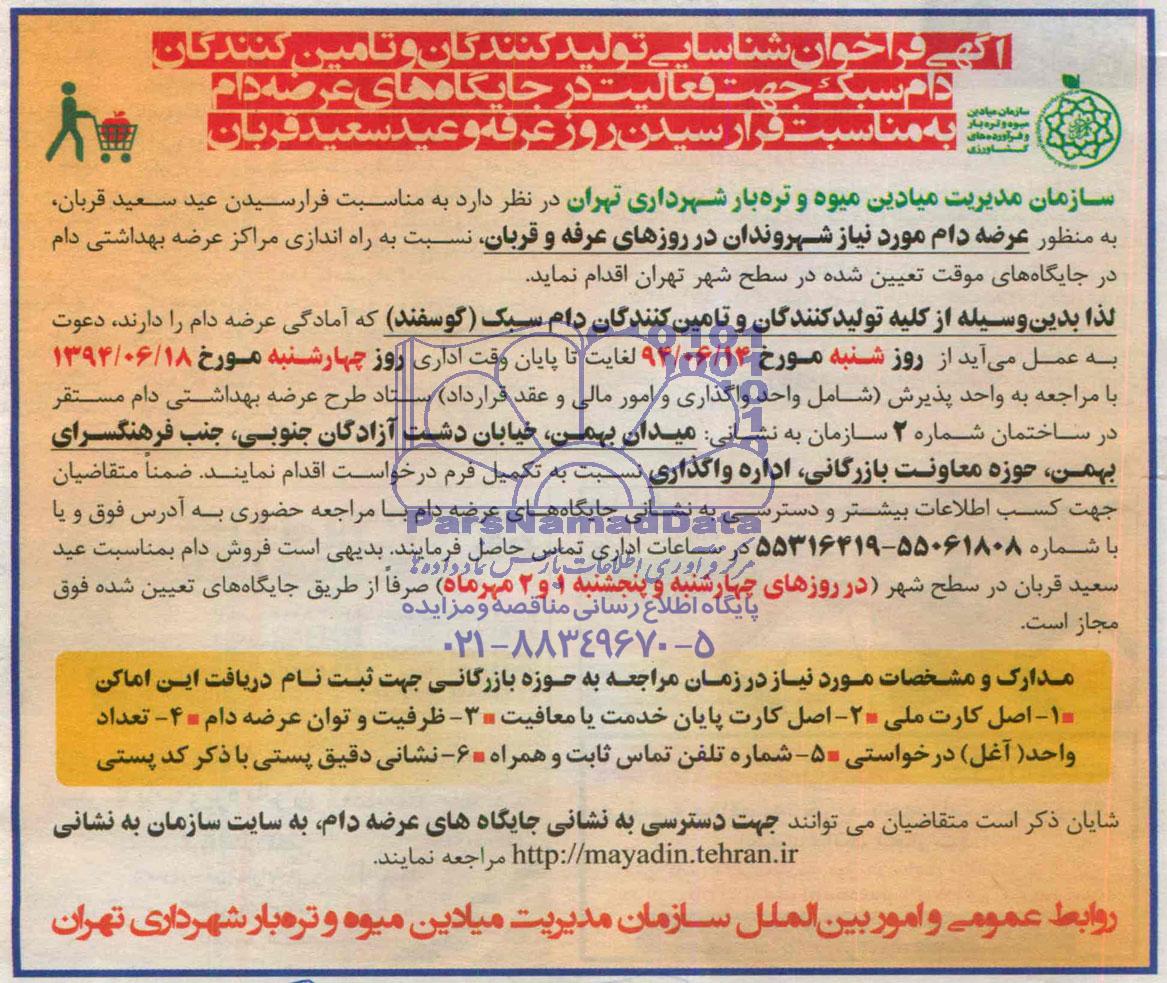 آگهی فراخوان شناسایی تولیدکنندگان و تامین کنندگان
دام سبک جهت فعالیت در جایگاه های عرضه دام
به مناسبت فرارسیدن روز عرفه و عید سعید قربان
سازمان میادین
میوه و تره بار
و فرآورده های
کشاورزی
سازمان مدیریت میادین میوه و تره‌بار شهرداری تهران در نظر دارد به مناسبت فرارسیدن عید سعید قربان،
به منظور عرضه دام مورد نیاز شهروندان در روزهای عرفه و قربان، نسبت به راه اندازی مراکز عرضه بهداشتی دام
در جایگاه‌های موقت تعیین شده در سطح شهر تهران اقدام نماید.
لذا بدین‌وسیله از کلیه تولیدکنندگان و تامین‌کنندگان دام سبک (گوسفند) که آمادگی عرضه دام را دارند، دعوت
به عمل می‌آید از روز شنبه مورخ ۹۴/۰۶/۱۴ لغایت تا پایان وقت اداری روز چهارشنبه مورخ ۱۳۹۴/۰۶/۱۸
با مراجعه به واحد پذیرش (شامل واحد واگذاری و امور مالی و عقد قرارداد) ستاد طرح عرضه بهداشتی دام مستقر
در ساختمان شماره ۲ سازمان به نشانی: میدان بهمن، خیابان دشت آزادگان جنوبی، جنب فرهنگسرای
بهمن، حوزه معاونت بازرگانی، اداره واگذاری نسبت به تکمیل فرم درخواست اقدام نمایند. ضمناً متقاضیان
جهت کسب اطلاعات بیشتر و دسترسی به نشانی جایگاه‌های عرضه دام با مراجعه حضوری به آدرس فوق و یا
با شماره ۵۵۰۶۱۸۰۸-۵۵۳۱۶۴۱۹ در ساعات اداری تماس حاصل فرمایند. بدیهی است فروش دام بمناسبت عید
سعید قربان در سطح شهر (در روزهای چهارشنبه و پنجشنبه ۱ و ۲ مهرماه) صرفاً از طریق جایگاه‌های تعیین شده فوق
مجاز است.
0101
1001
10
1
ParsNamadData
مرکز فرآوری اطلاعات پارس نماد داده ها
پایگاه اطلاع رسانی مناقصه و مزایده
۰۲۱-۸۸۳۴۹۶۷۰-۵
مدارک و مشخصات مورد نیاز در زمان مراجعه به حوزه بازرگانی جهت ثبت نام دریافت این اماکن
■۱- اصل کارت ملی ■۲- اصل کارت پایان خدمت یا معافیت ■۳- ظرفیت و توان عرضه دام ■۴- تعداد
واحد( آغل) درخواستی ■۵- شماره تلفن تماس ثابت و همراه ■۶- نشانی دقیق پستی با ذکر کد پستی
شایان ذکر است متقاضیان می توانند جهت دسترسی به نشانی جایگاه های عرضه دام، به سایت سازمان به نشانی
http://mayadin.tehran.ir مراجعه نمایند.
روابط عمومی و امور بین‌الملل سازمان مدیریت میادین میوه و تره‌بار شهرداری تهران